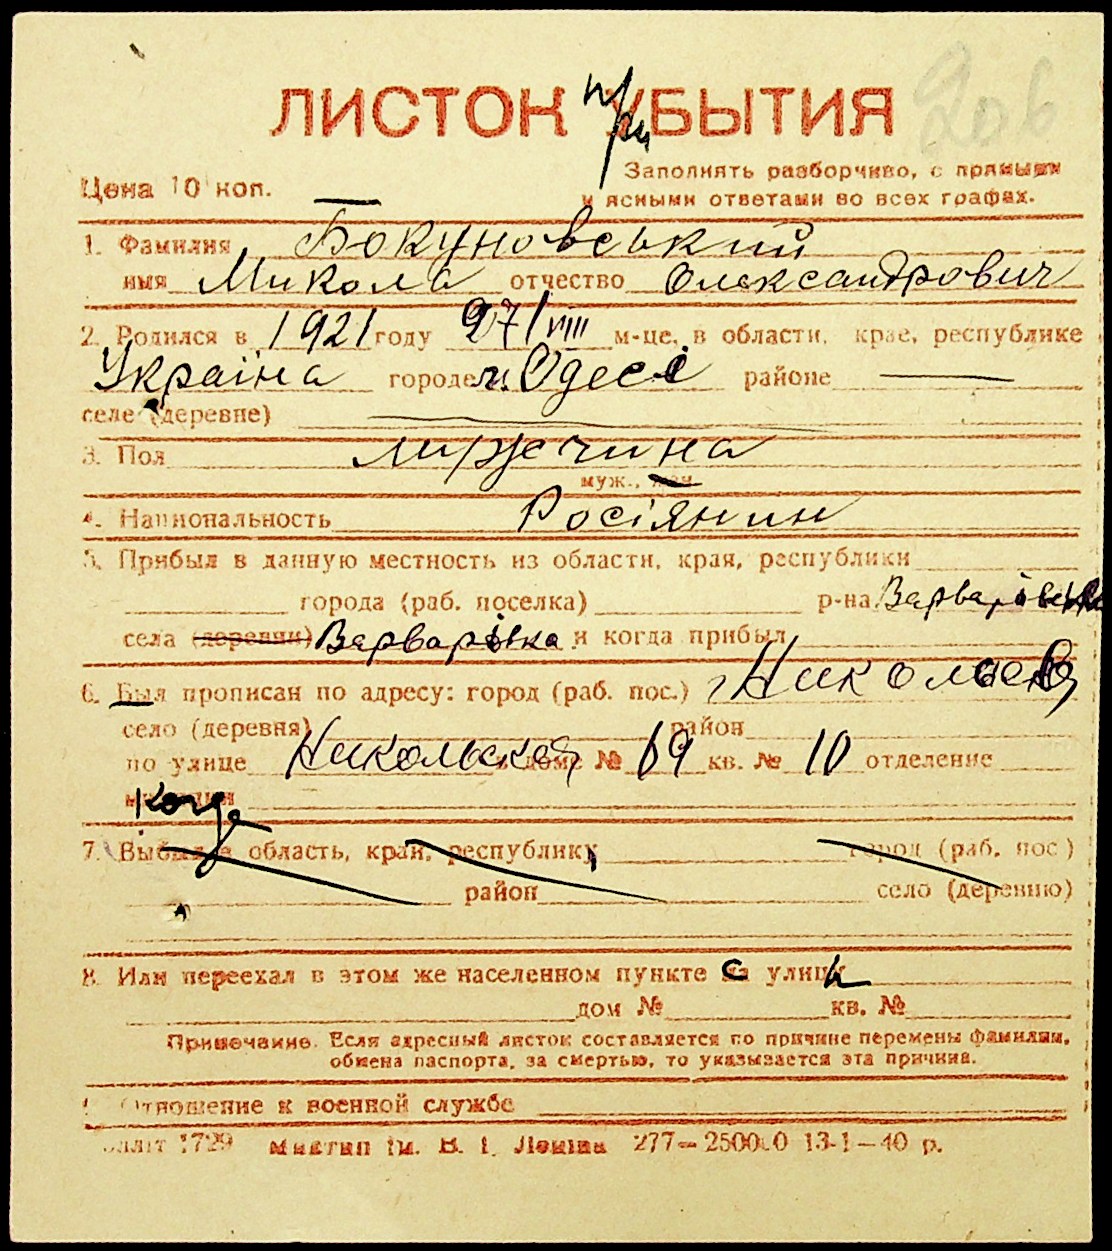 206
ЛИСТОК при УБЫТИЯ
Цена 10 коп.
Заполнять разборчиво, с прямыми
и ясными ответами во всех графах.
1. Фамилия Бокуновський
имя Микола отчество Олександрович
2. Родился в 1921 году 27/VIII м-це, в области, крае, республике
Україна городе м. Одесі районе —
селе (деревне)
3. Пол мужчина
муж., жен
4. Национальность Росіянин
5. Прибыл в данную местность из области, края, республики
города (раб. поселка) р-на Варварівська
села (деревни) Варварівка и когда прибыл
6. Был прописан по адресу: город (раб. пос.) г. Николаев
село (деревня) район
по улице Никольская в доме № 69 кв. № 10 отделение
милиции
Когда
7. Выбыл в область, край, республику город (раб. пос)
район село (деревню)
8. Или переехал в этом же населенном пункте с улицы
дом № кв. №
Примечание. Если адресный листок составляется по причине перемены фамилии,
обмена паспорта, за смертью, то указывается эта причина.
Отношение к военной службе
1729 Миктип ім. В. І. Леніна 277—250000 13-1—40 р.